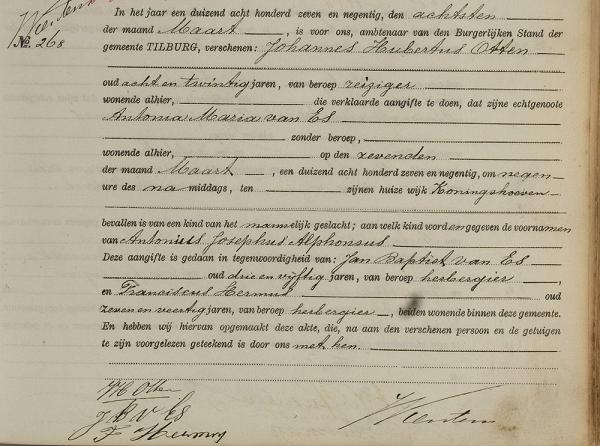 In het jaar een duizend acht honderd zeven en negentig, den achtsten
der maand Maart, is voor ons, ambtenaar van den Burgerlijken Stand der
No. 268 gemeente TILBURG, verschenen: Johannes Hubertus Otten
oud acht en twintig jaren, van beroep reiziger
wonende alhier, die verklaarde aangifte te doen, dat zijne echtgenoote
Antonia Maria van Es
zonder beroep,
wonende alhier, op den zevenden
der maand Maart, een duizend acht honderd zeven en negentig, om negen
ure des na middags, ten zijnen huize wijk Koningshoeven
bevallen is van een kind van het mannelijk geslacht; aan welk kind word en gegeven de voornamen
van Antonius Josephus Alphonsus
Deze aangifte is gedaan in tegenwoordigheid van: Jan Baptist van Es
oud drie en vijftig jaren, van beroep herbergier,
en Franciscus Hermus oud
zeven en veertig jaren, van beroep herbergier, beiden wonende binnen deze gemeente.
En hebben wij hiervan opgemaakt deze akte, die, na aan den verschenen persoon en de getuigen
te zijn voorgelezen geteekend is door ons met hen.
Otten
J B v Es
F Hermus